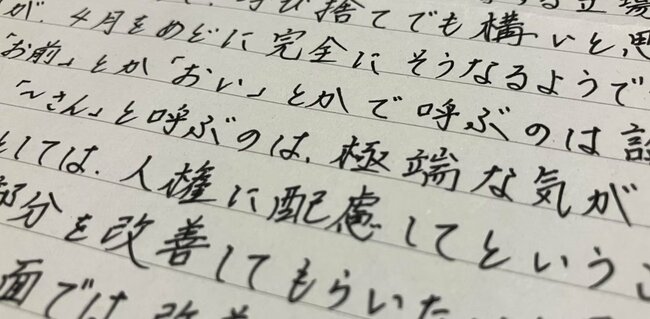 が、4月をめどに完全にそうなるようで
捨てでも構いと、
「お前」とか「おい」とかで呼ぶのは
「〜さん」と呼ぶのは、極端な気が
としては、人権に配慮してというこ
部分を改善してもらいた
面では